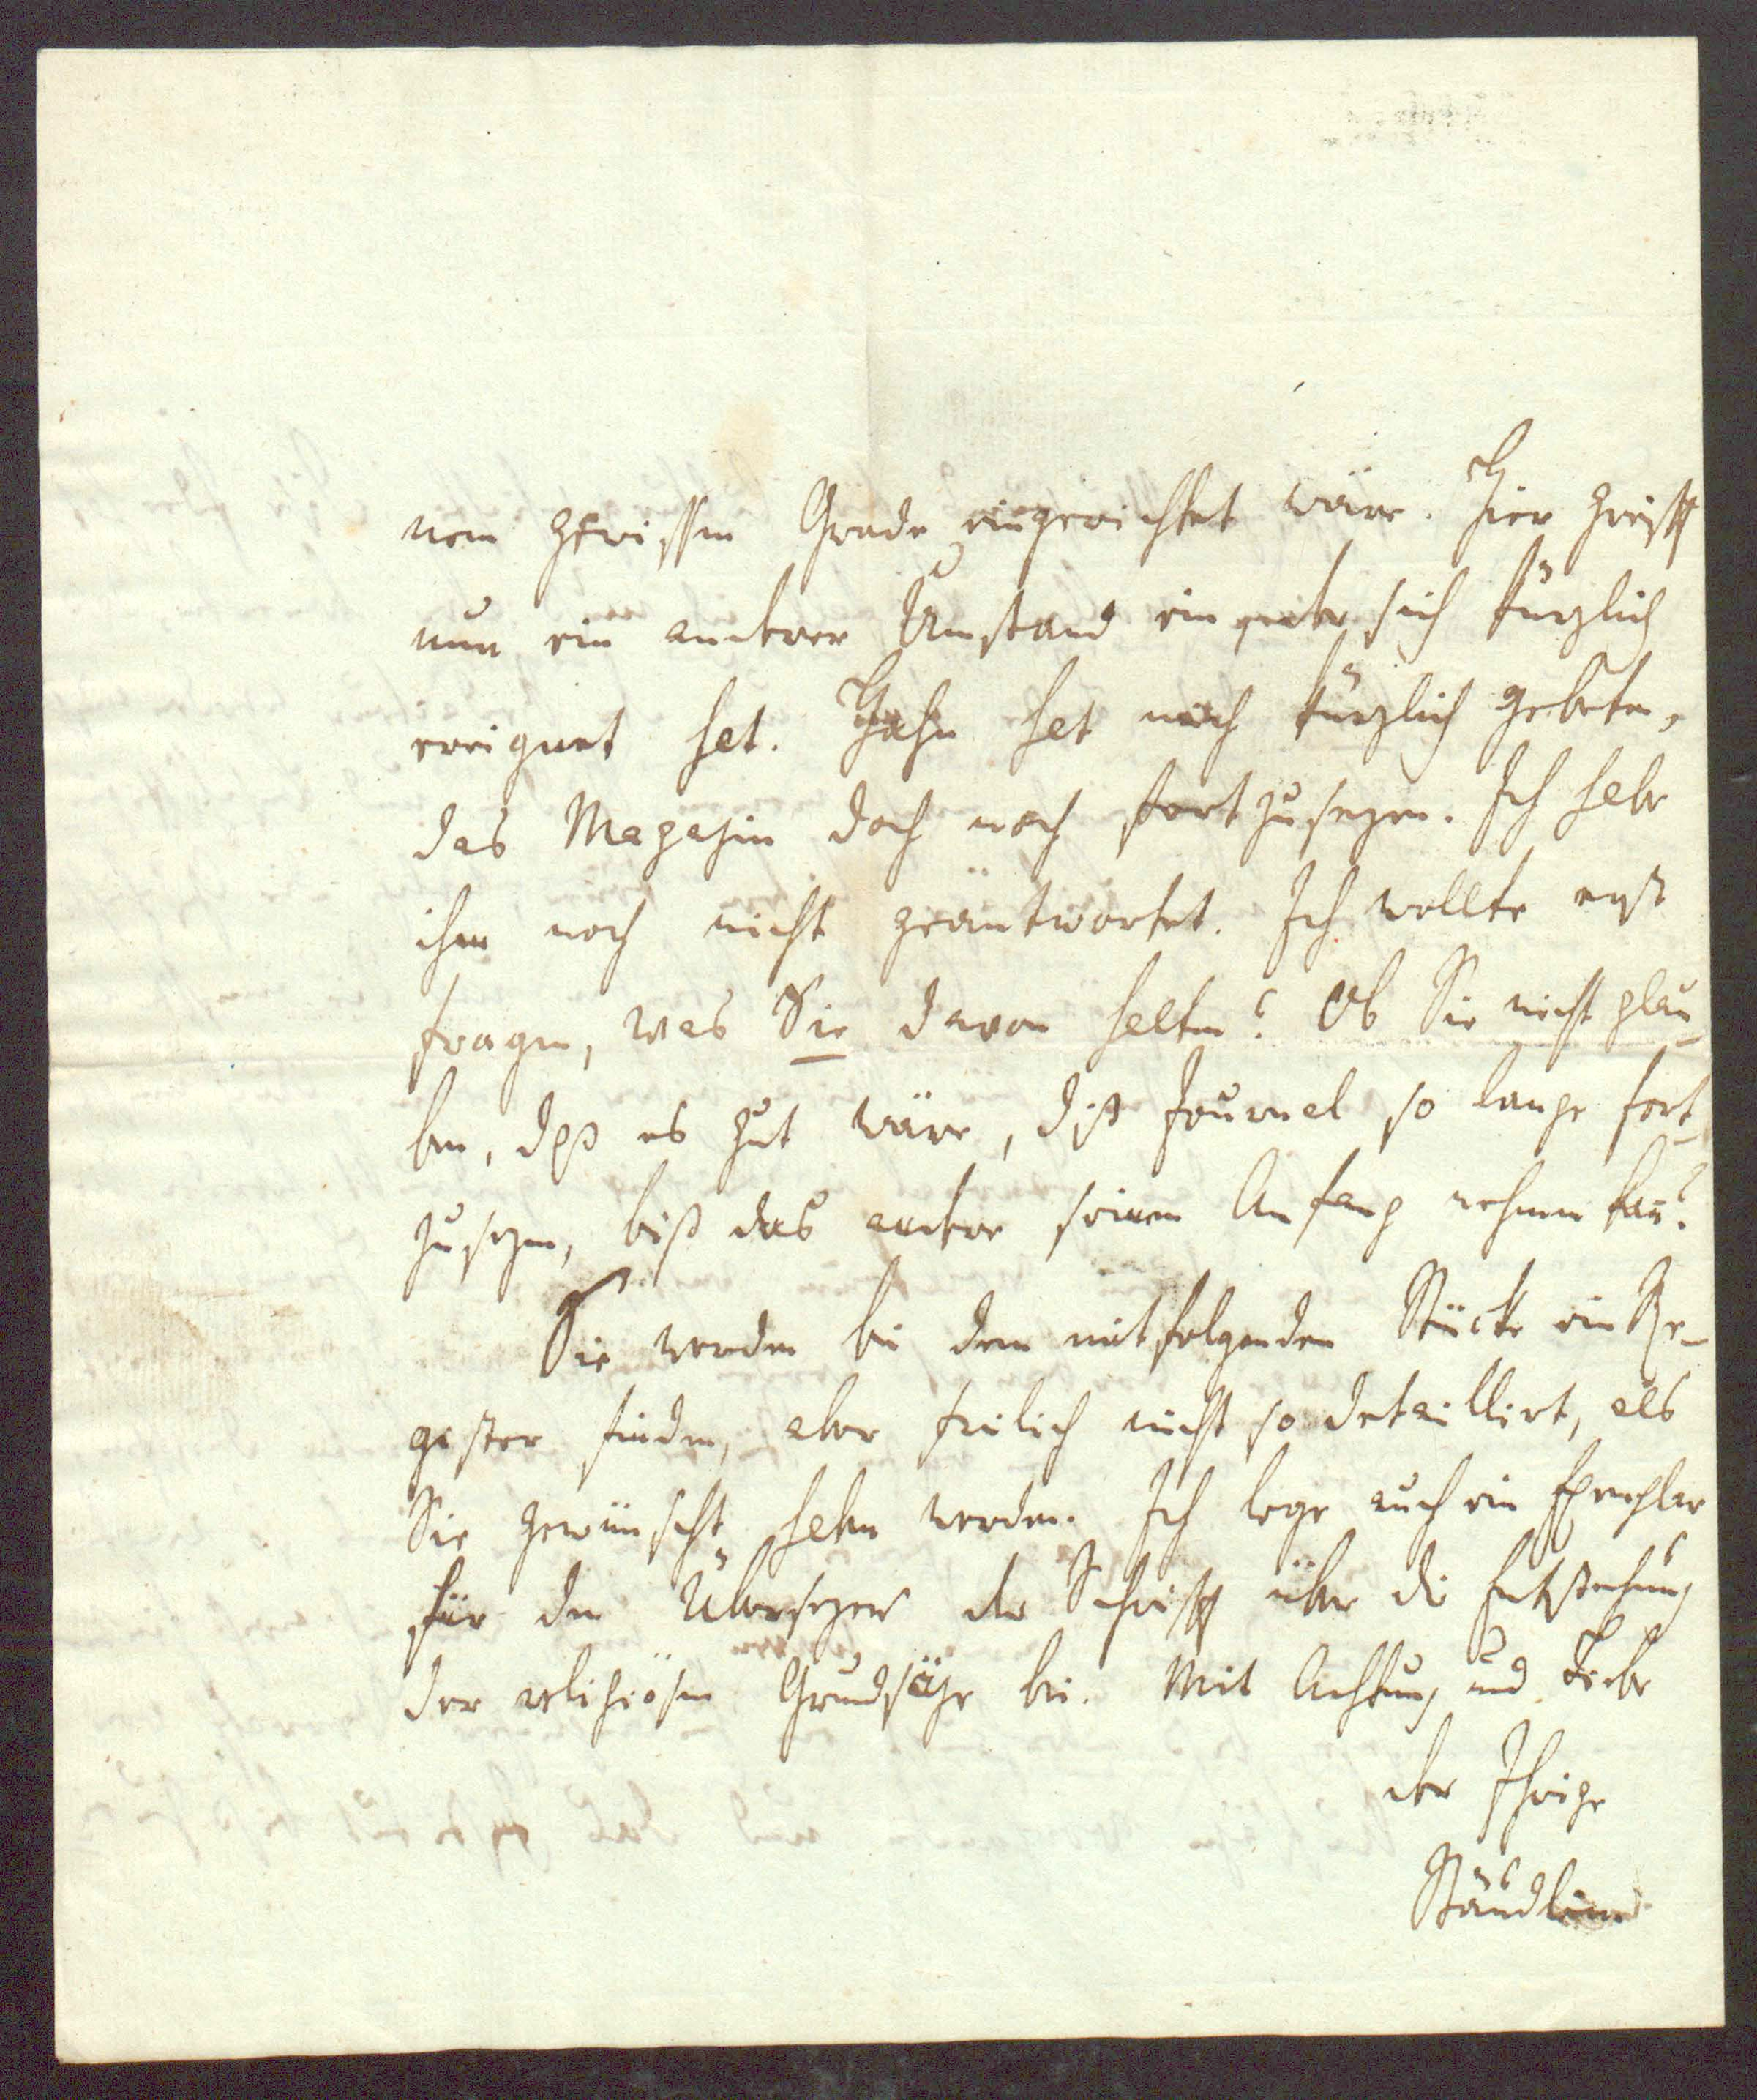 nem gewissen Grade eingerichtet wäre. Hier greifft
nun ein anderer Umstand ein, der sich kürzlich
ereignet hat. Hahn hat mich kürzlich gebeten,
das Magazin doch noch fortzusezen. Ich habe
ihm noch nicht geantwortet. Ich wollte erst
fragen, was Sie davon halten? Ob Sie nicht glau-
ben, daß es gut wäre, diß Journal so lange fort-
zusezen, biß das andere seinen Anfang nehmen kan̄?
Sie werden bei dem mitfolgenden Stücke ein Re-
gister finden, aber freilich nicht so detaillirt, als
Sie gewünscht haben werden. Ich lege auch ein Exemplar
für den Übersezer der Schrifft über die Entstehung
der religiösen Grundsäze bei. Mit Achtung und Liebe
der Ihrige
Stäudlin